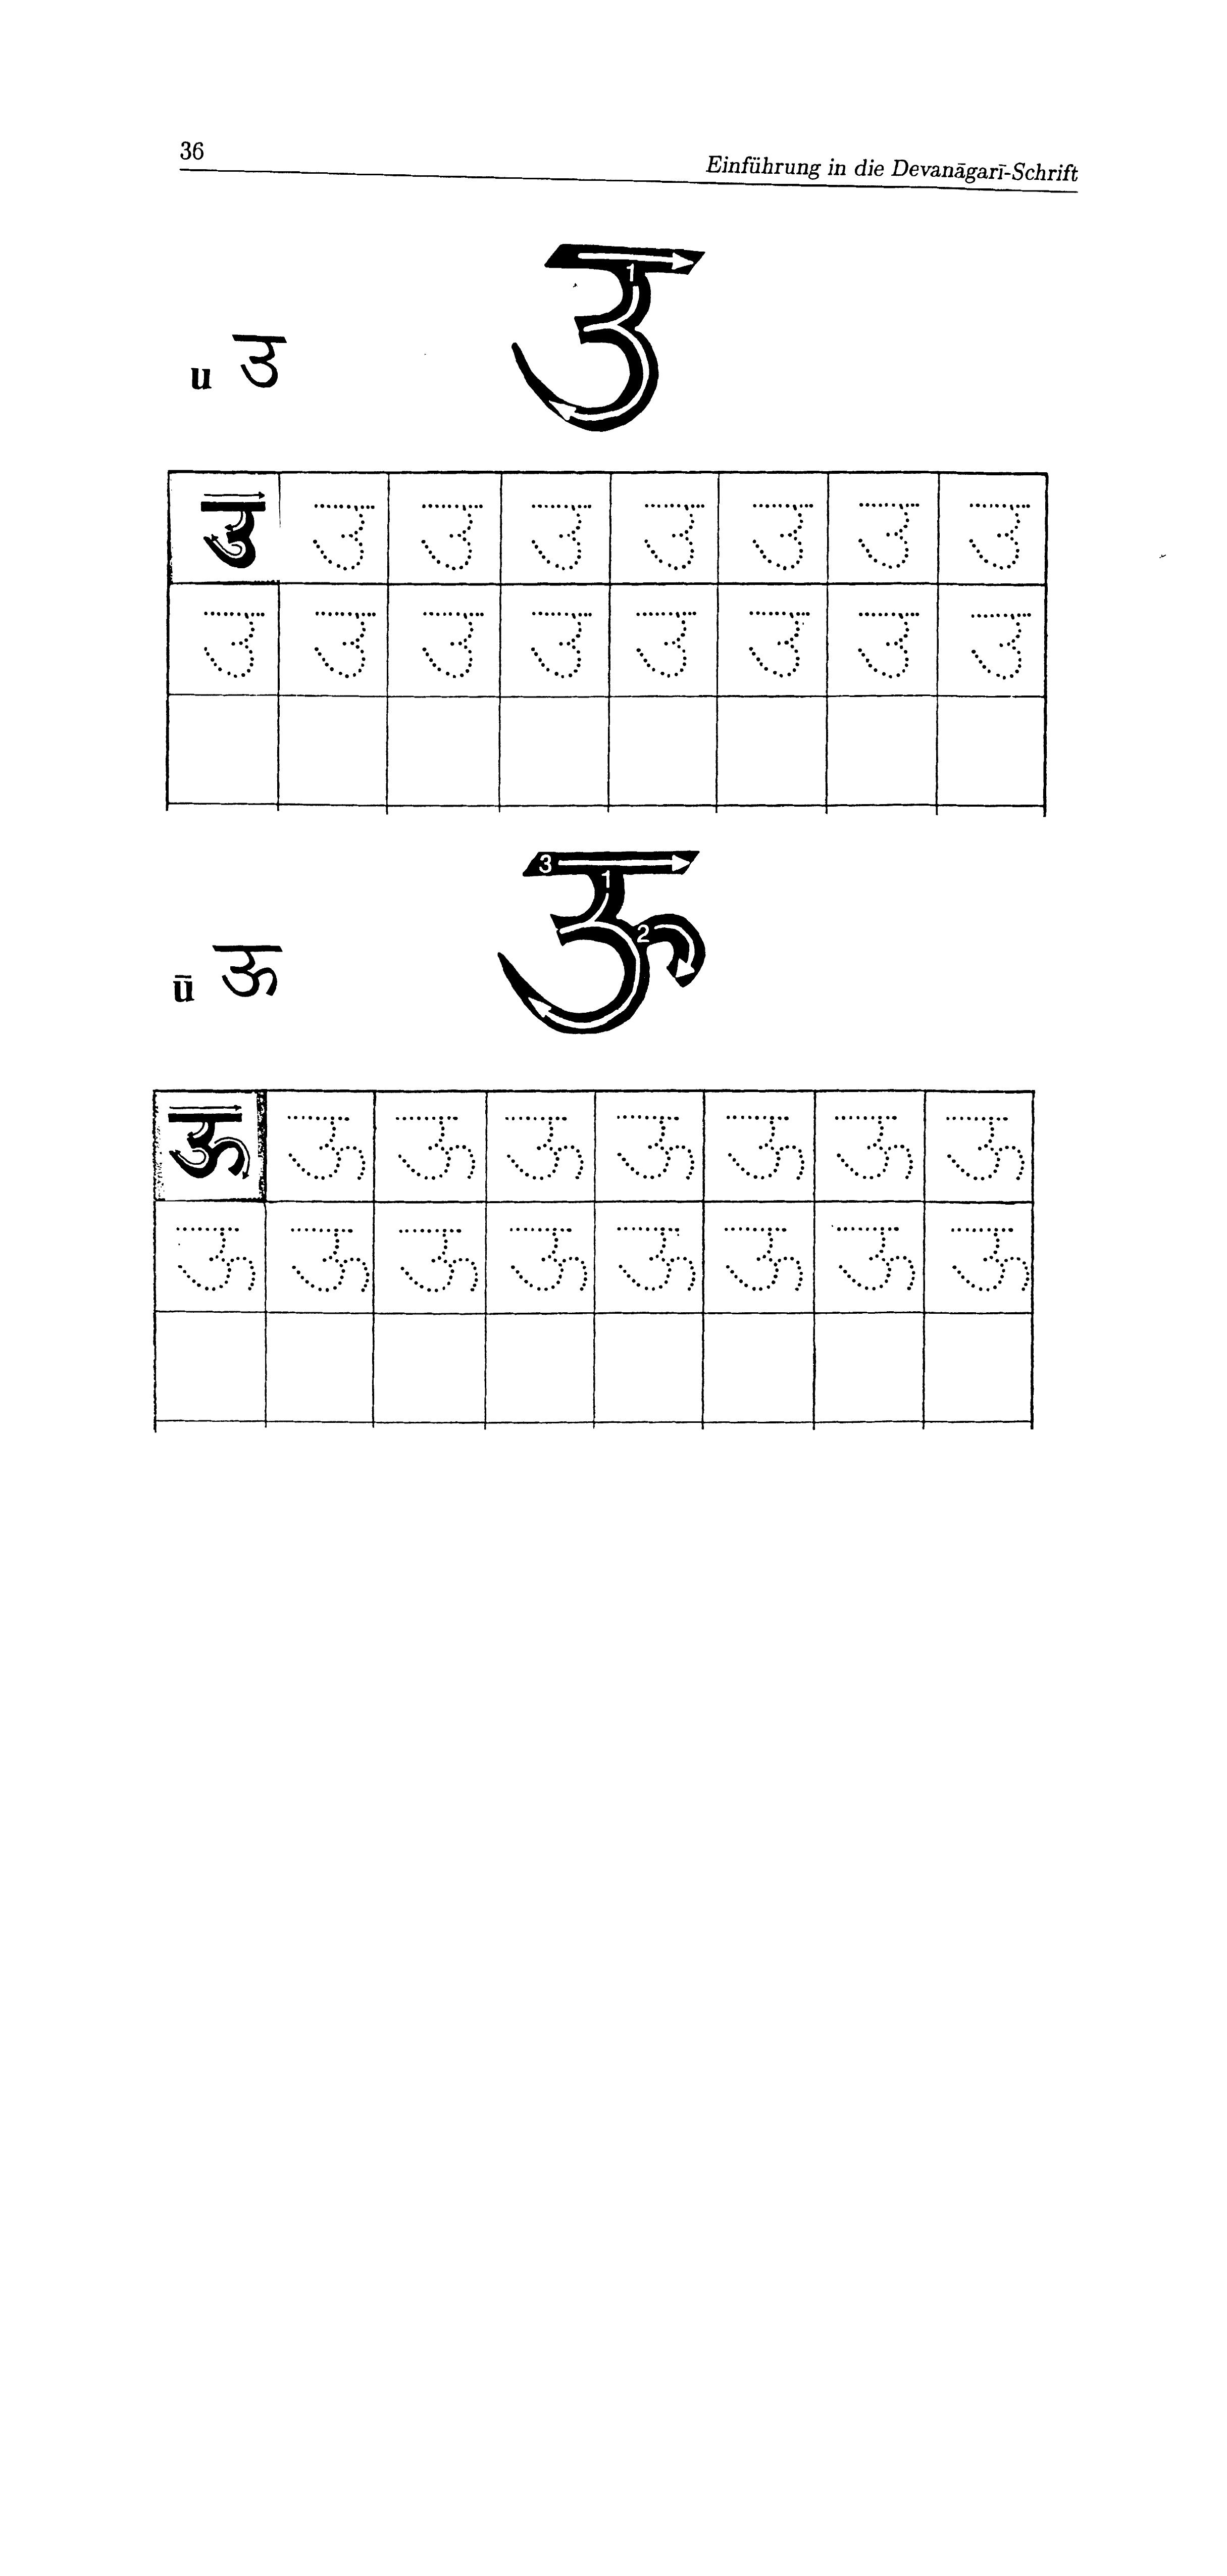 36
Einführung in die Devanāgarī-Schrift
1
u उ उ
उ उ उ उ उ उ उ उ
उ उ उ उ उ उ उ उ
3
1
2
ū ऊ ऊ
ऊ ऊ ऊ ऊ ऊ ऊ ऊ ऊ
ऊ ऊ ऊ ऊ ऊ ऊ ऊ ऊ